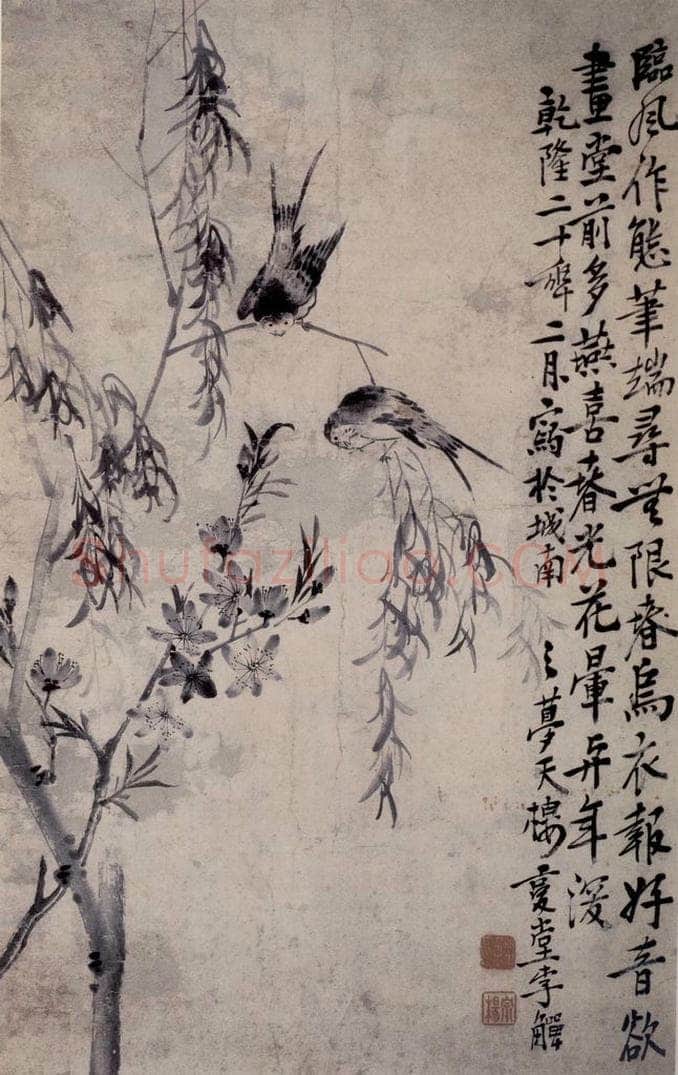 臨風作態筆端尋無限春烏衣報好音欲
畫堂前多燕喜春光花暈与年深
乾隆二十年二月寫於城南之夢天樓 复堂李觶
宗揚
Shufaziliao.COM